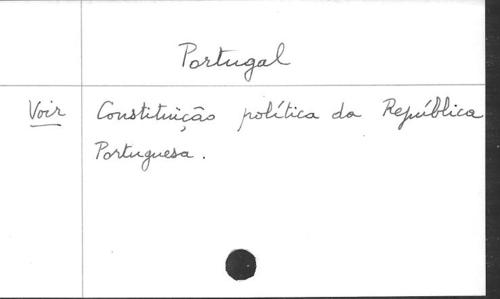 Portugal
Voir Constituição política da República
Portuguesa.